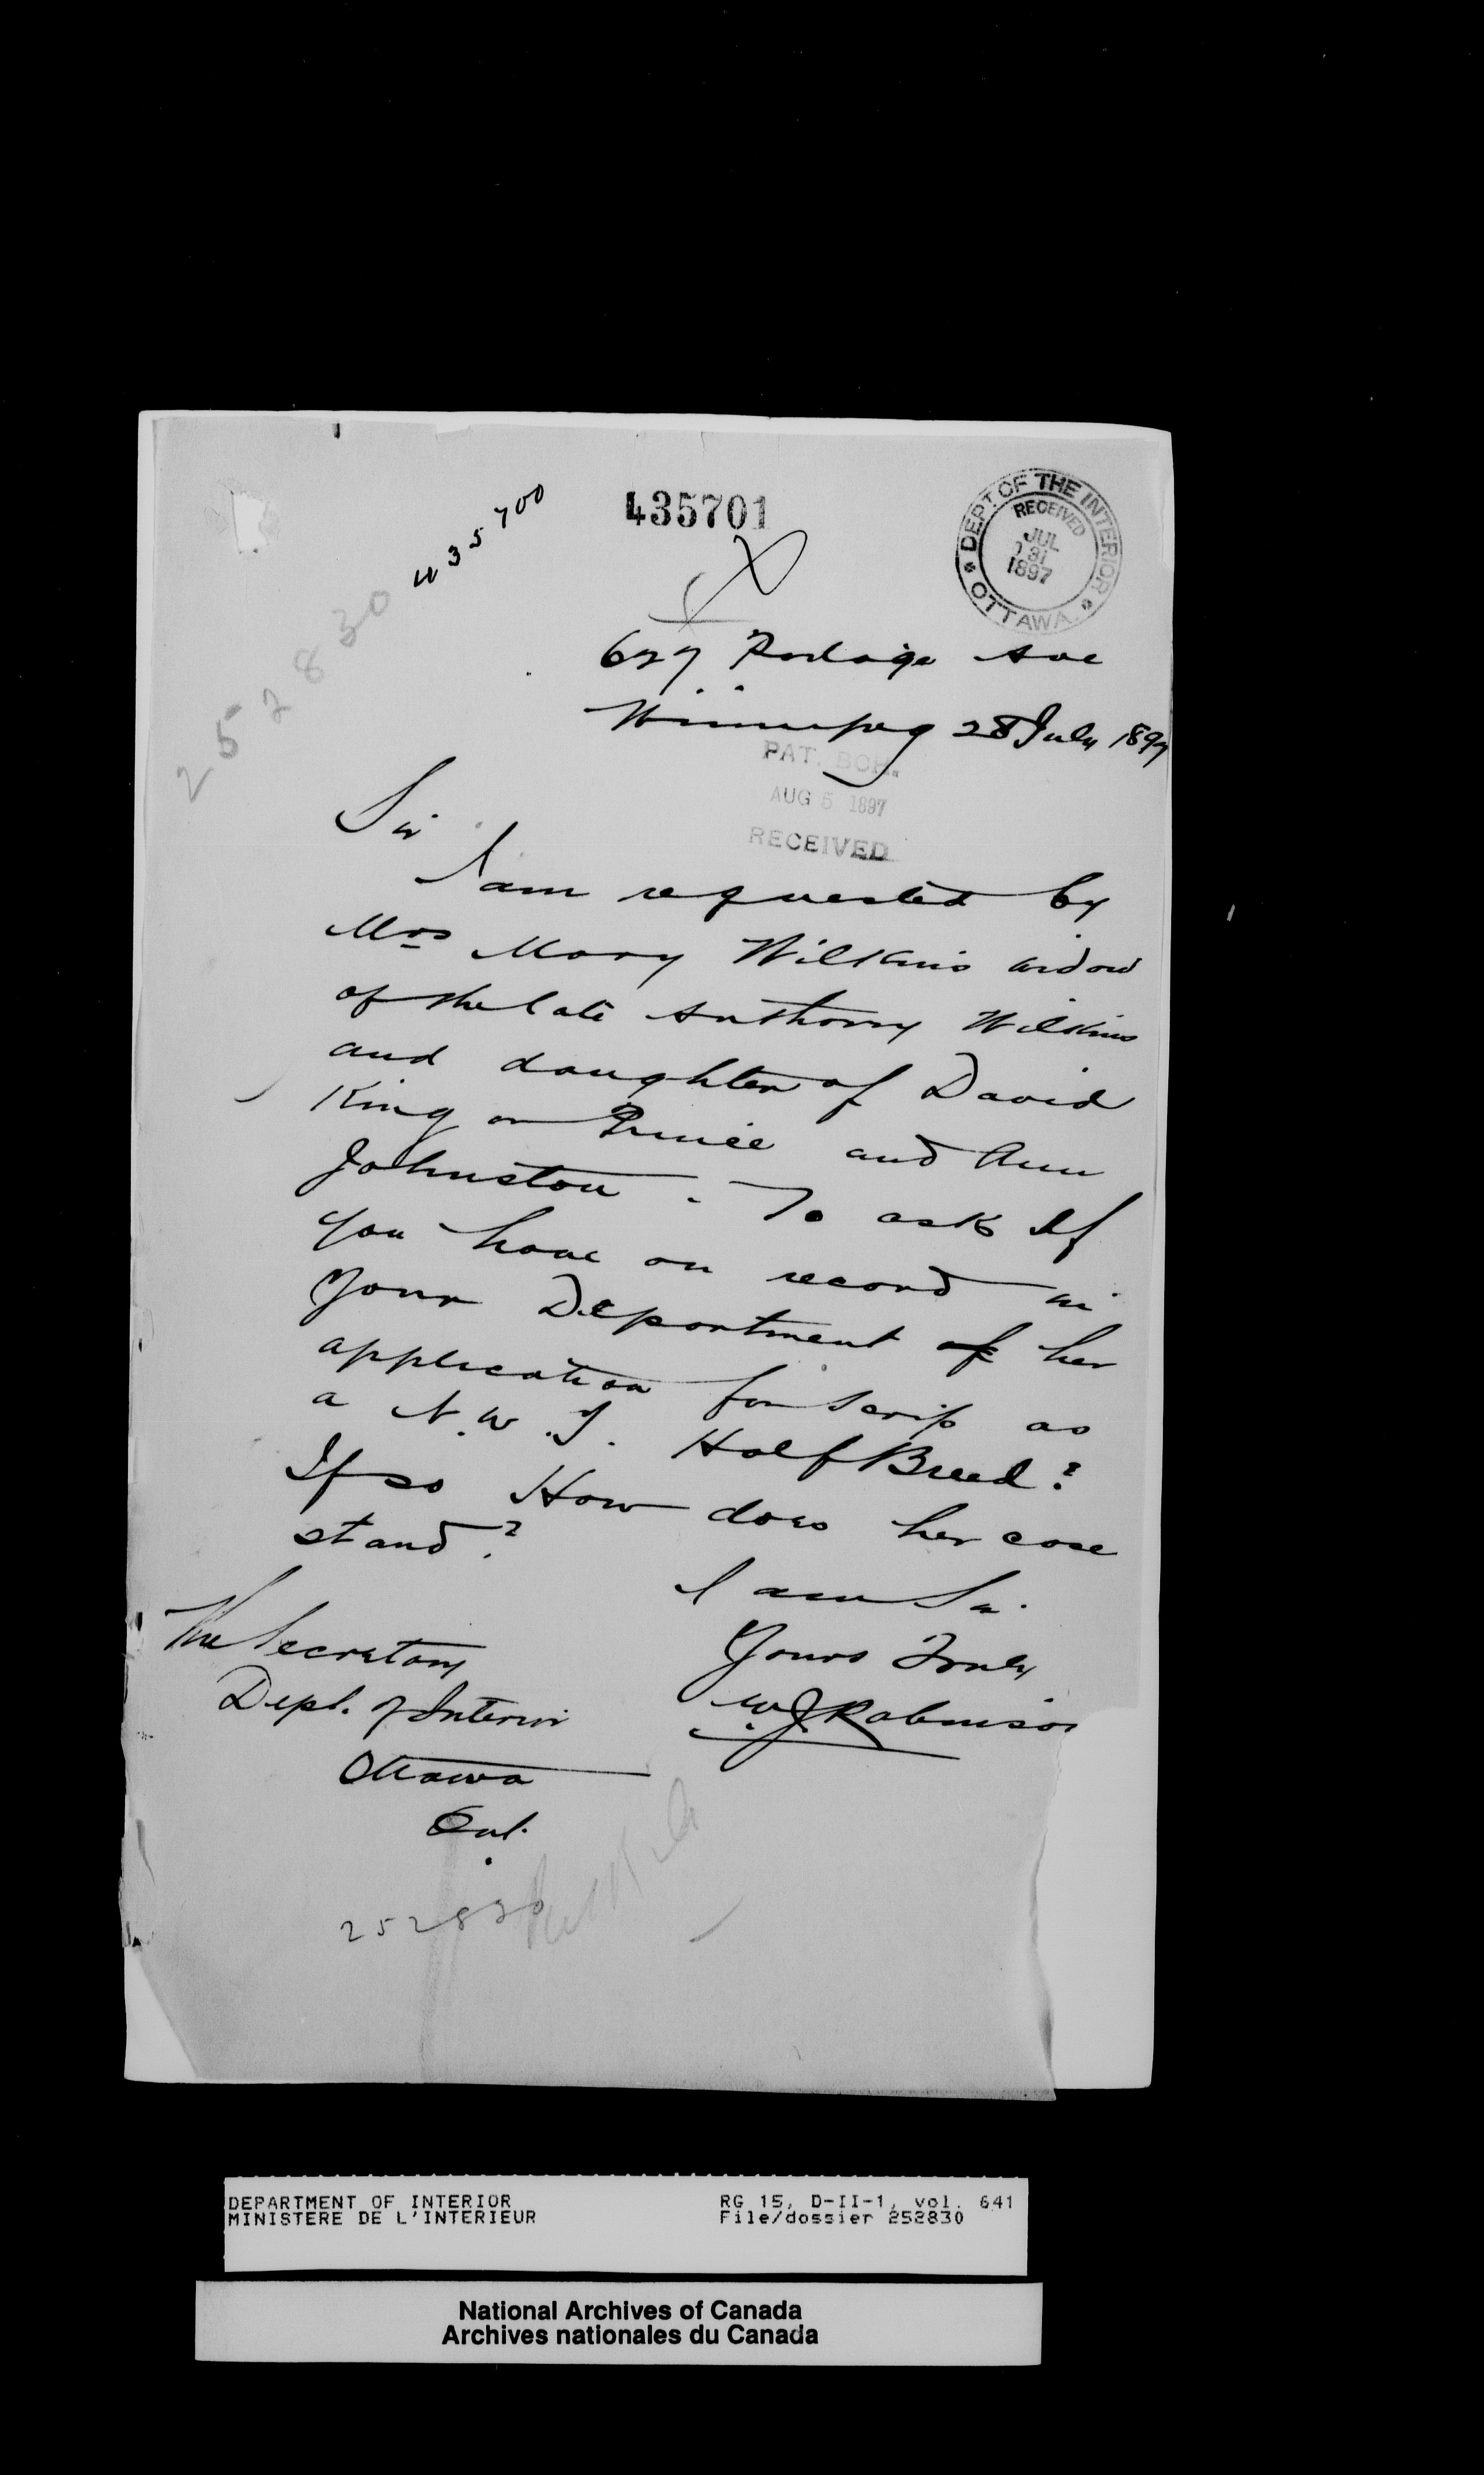 435701
435700
252830
DEPT. OF THE INTERIOR
RECEIVED
JUL
31
1897
OTTAWA.
627 Portage Ave
Winnipeg 28 July 1897
PAT. BCH.
AUG 5 1897
RECEIVED
Sir
I am requested by
Mrs Mary Wilkins widow
of the late Anthony Wilkins
and daughter of David
King or Prince and Ann
Johnston. To ask If
you have on record in
Your Department of her
application for Scrip as
a N.W.T. Half Breed?
If so How does her case
stand?
I am Sir
Yours Truly
W.J. Robinson
The Secretary
Dept. of Interior
Ottawa
Ont.
252830
DEPARTMENT OF INTERIOR
MINISTERE DE L'INTERIEUR
RG 15, D-II-1, vol. 641
File/dossier 252830
National Archives of Canada
Archives nationales du Canada